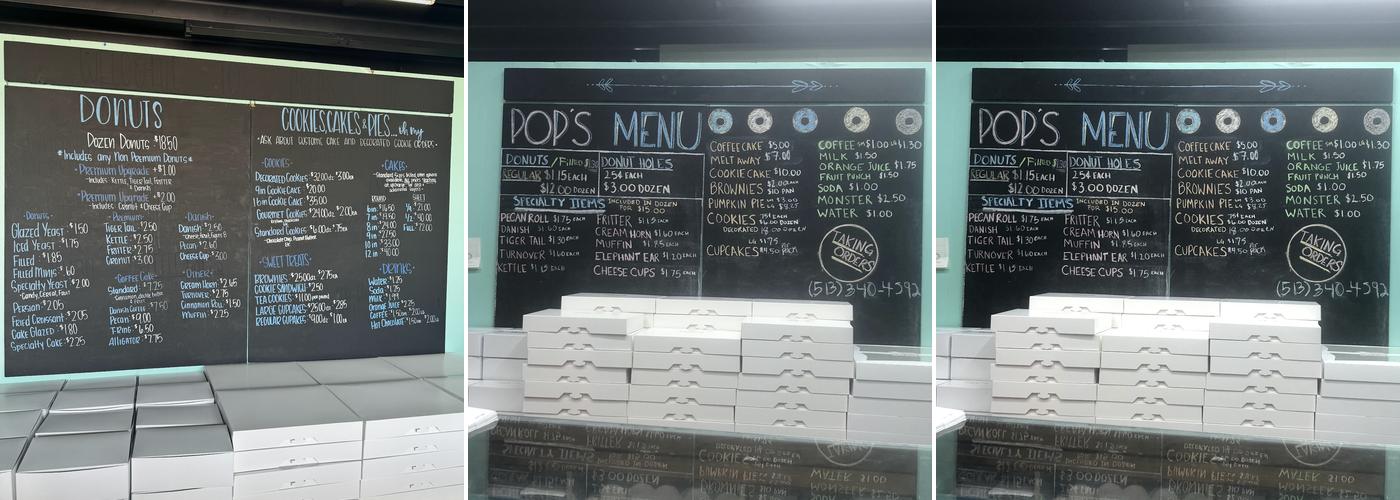 DONUTS
DOZEN DONUTS $18.50
*Includes any Non Premium Donuts*
-Premium Upgrade +$1.00
-Includes: Kettle, Tiger Tail, Fritter & Donuts
-Premium Upgrade +$2.00
-Includes: Coronut & Cheese Cup
-Donuts-
Glazed Yeast $1.50
Iced Yeast $1.75
Filled $1.85
Filled Minis $.60
Specialty Yeast $2.00
-Candy, Cereal, Fruit
Persian $2.05
Fried Croissant $2.05
Cake Glazed $1.80
Specialty Cake $2.25
-Premium-
Tiger Tail $2.50
Kettle $2.50
Fritter $2.75
Coronut $3.00
-Coffee Cake-
Standard $7.25
Danish Coffee $7.50
Pecan $9.00
T-Ring $6.50
Alligator $7.75
-Danish-
Danish $2.50
Pecan $2.60
Cheese Cup $3.00
-Other-
Cream Horn $2.65
Turnover $2.75
Cinnamon Roll $1.50
Muffin $2.25
COOKIES, CAKES & PIES... oh my
*ASK ABOUT CUSTOM CAKE AND DECORATED COOKIE ORDERS*
-COOKIES-
Decorated Cookies $32.00dz $3.00ea
9in Cookie Cake $20.00
12in Cookie Cake $35.00
Gourmet Cookies $24.00dz $2.00ea
Standard Cookies $6.00dz $.75ea
-Chocolate Chip, Peanut Butter
-SWEET TREATS-
BROWNIES $25.00dz $2.75ea
COOKIE SANDWICH $2.50
TEA COOKIES $11.00 per pound
LARGE CUPCAKES $25.00dz $2.85
REGULAR CUPCAKES $9.00dz $1.00ea
-CAKES-
ROUND
SHEET
6in $16.50
7in $19.50
8in $24.00
9in $27.50
10in $33.00
12in $40.00
FULL $72.00
-DRINKS-
Water $1.25
Soda $1.75
Milk $1.99
Orange Juice $2.25
Coffee $1.50sm $2.00lg
Hot Chocolate $1.50sm $2.00lg
POP'S MENU
DONUTS/Filled $1.30
REGULAR $1.15 EACH
$12.00 DOZEN
DONUT HOLES
25¢ EACH
$3.00 DOZEN
SPECIALTY ITEMS
INCLUDED IN DOZEN
FOR $15.00
PECAN ROLL $1.75 EACH
DANISH $1.60 EACH
TIGER TAIL $1.30 EACH
TURNOVER $1.60 EACH
KETTLE $1.15 EACH
FRITTER $1.15 EACH
CREAM HORN $1.60 EACH
MUFFIN $1.85 EACH
ELEPHANT EAR $1.20 EACH
CHEESE CUPS $1.75 EACH
COFFEE CAKE $5.00
MELT AWAY $7.00
COOKIE CAKE $10.00
BROWNIES $2.00 EACH $10 PAN
PUMPKIN PIE
COOKIES 75¢ EACH $6.00 DOZEN
DECORATED
CUPCAKES
COFFEE SM $1.00 LG $1.30
MILK $1.50
ORANGE JUICE $1.75
FRUIT PUNCH $1.50
SODA $1.00
MONSTER $2.50
WATER $1.00
TAKING
ORDERS
(513)340-4592
POP'S MENU
DONUTS/Filled $1.30
REGULAR $1.15 EACH
$12.00 DOZEN
DONUT HOLES
25¢ EACH
$3.00 DOZEN
SPECIALTY ITEMS
INCLUDED IN DOZEN
FOR $15.00
PECAN ROLL $1.75 EACH
DANISH $1.60 EACH
TIGER TAIL $1.30 EACH
TURNOVER $1.60 EACH
KETTLE $1.15 EACH
FRITTER $1.15 EACH
CREAM HORN $1.60 EACH
MUFFIN $1.85 EACH
ELEPHANT EAR $1.20 EACH
CHEESE CUPS $1.75 EACH
COFFEE CAKE $5.00
MELT AWAY $7.00
COOKIE CAKE $10.00
BROWNIES $2.00 EACH $10 PAN
PUMPKIN PIE
COOKIES 75¢ EACH $6.00 DOZEN
DECORATED
CUPCAKES
COFFEE SM $1.00 LG $1.30
MILK $1.50
ORANGE JUICE $1.75
FRUIT PUNCH $1.50
SODA $1.00
MONSTER $2.50
WATER $1.00
TAKING
ORDERS
(513)340-4592